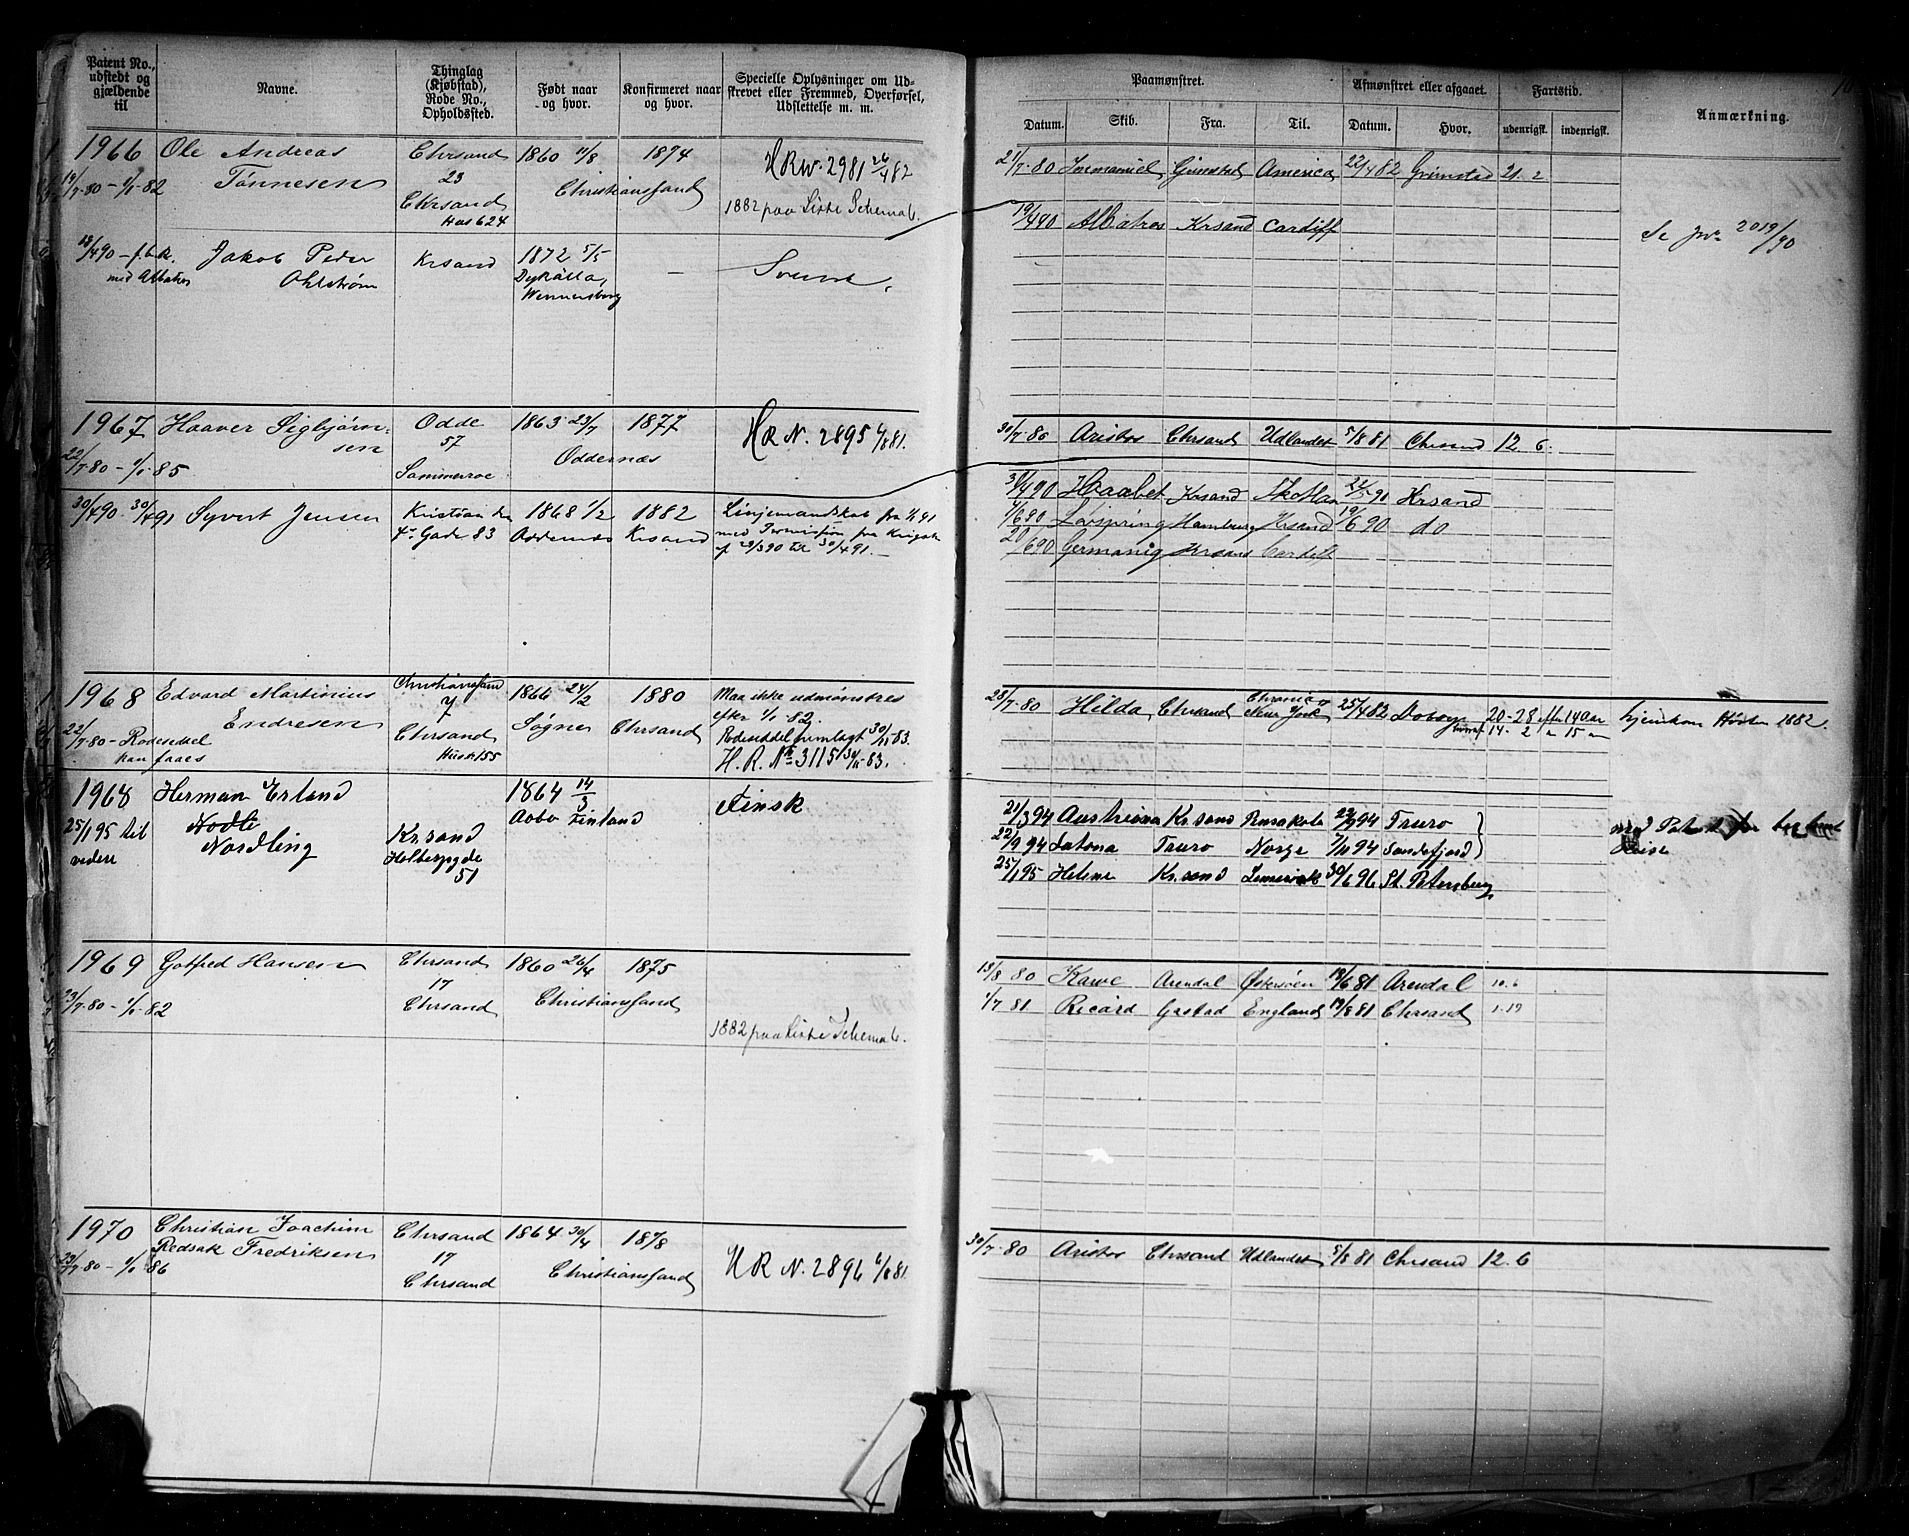 Patent No., udstedt og gjældende til
Navne.
Thinglag (Kjøbstad), Rode No., Opholdssted.
Født naar og hvor.
Konfirmeret naar og hvor.
Specielle Oplysninger om Udskrevet eller Fremmed, Overførsel, Udslettelse m. m.
Paamønstret.
Afmønstret eller afgaaet.
Fartstid.
Anmærkning.
Datum. Skib. Fra. Til. Datum. Hvor. udenrigsk. indenrigsk.
1966 Ole Andreas Chrsand 1860 11/8 1874
Tønnesen 23 Christianssand
19/7-80 - 1/1-82 Chrsand
Hus 624
1882 paa Liste Schema b.
21/7-80 Immanuel Grimstad America 22/4 82 Grimstad 21. 2
19/4 90 Albatros Krsand Cardiff
Se 2019/90
18/4 90 - Jakob Peder Krsand 1872 5/5 -
med Albatros Ohlstrøm
Wennersborg
1967 Haaver Sigbjørnsen Odde 1863 23/7 1877
57 Oddernæs
22/7-80 - 1/1-85
H R N. 2895 6/8 81.
30/7-80 Aristos Chrsand Udlandet 5/8 81 Chrsand 12. 6.
30/4 90 - 30/4 91 Syvert Jensen 1868 1/2 1882
4de Gade 83 Oddernæs Krsand
af 29/3 90 til 30/4 91.-
Haabet Krsand Krsand
Løvspring Hamburg Krsand 19/6 90 do
20/6 90 Krsand Cardiff
1968 Edvard Martinius Christianssand 1866 24/2 1880
Endresen 7 Søgne Chrsand
22/7-80 - Rodeseddel Chrsand
kan faaes Hus 155
Maa ikke udmønstres
efter 1/1-82.
Rodeseddel fremlagt 30/11-83.
H. R. No 3115 30/11-83.
28/7-80 Hilda Chrsand New York 25/4 82 20-28 efter 14 Aar
14. 2 15
hjemkom Høsten 1882.
1968 Herman Erland 1864 14/3 Finsk
Nordling Aabo Finland
25/1 95 til Kr.sand
videre 51
21/3 94 Austriana Kr.sand Pensakola 22/9 94 Truro
22/9 94 Latona Truro Norge 7/10 94 Sandefjord
25/1 95 Helene Kr.sand 30/6 96 St. Petersburg
Reise
1969 Gotfred Hansen Chrsand 1860 26/4 1875
17 Christianssand
23/7-80 - 1/1-82 Chrsand
1882 paa Liste Schema b.
13/8 80 Arendal Østersøen 19/6 81 Arendal 10. 6
1/7 81 Ricard England 19/8 81 Chrsand 1. 19
1970 Christian Joachim Chrsand 1864 30/4 1878
Redsak Fredriksen 17 Christianssand
23/7-80 - 1/1 86 Chrsand
H R N. 2896 6/8 81.
30/7-80 Aristos Chrsand Udlandet 5/8 81 Chrsand 12. 6